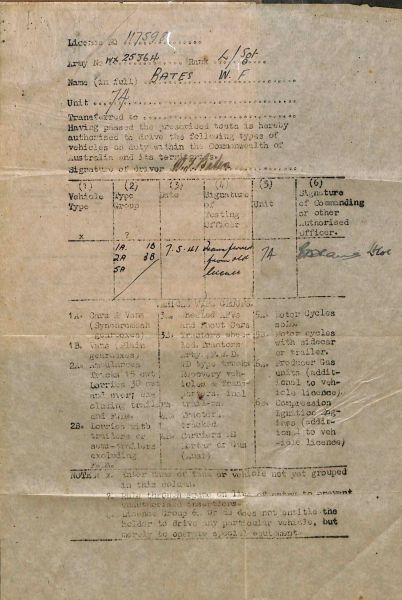 License No 11759
Army No WX 25364 Rank L/Sgt
Name (in full) BATES W. F
Unit 7A
Transferred to
Having passed the prescribed tests is hereby
authorised to drive the following types of
vehicles on duty within the Commonwealth of
Australia and its territories.
Signature of driver
(1) (2) (3) (4) (5) (6)
Vehicle Type
Type Group
Date
Signature of Testing Officer
Unit
Signature of Commanding or other Authorised Officer.
x ?
1A 1B 7-5-41 Transferred 7A
2A 3B from old
5A licence
VEHICLE TYPE GROUPS.
1A. Cars & Vans
(Syncromesh
gearboxes)
1B. Vans (Plain
gearboxes)
2A. Ambulances
Trucks 15 cwt
Lorries 30 cwt
and over, ex-
cluding trailers
2B. Lorries with
trailers or
semi-trailers
excluding
3A. Wheeled AFVs
and Scout Cars
3B. Tractors whee-
led Tractors
Arty F.W.D.
vehicles
Tractor.
tracked
Carriers MG
Mortar or Gun
5A. Motor Cycles
solo
Motor cycles
with sidecar
or trailer.
6A. Producer Gas
units (addit-
ional to veh-
icle licence).
6B. Compression
Ignition Eng-
ines (addit-
ional to veh-
icle licence)
NOTE: x. Enter name of type or vehicle not yet grouped
in this column.
?. Rule through space on line of entry to prevent
unauthorised insertions.
License Group 6A or 6B does not entitle the
holder to drive any particular vehicle, but
merely to operate special equipment